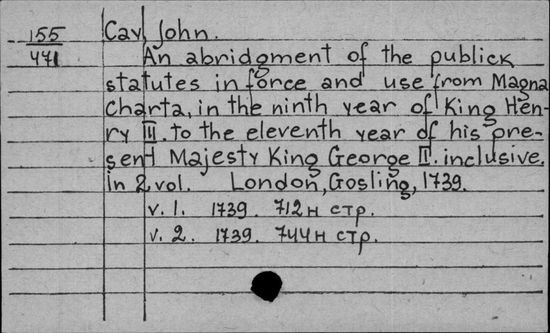 155
471
Cay John.
An abridgment of the publick
statutes in force and use from Magna
Charta, in the ninth year of King Hen-
ry III. to the eleventh year of his pre-
sent Majesty King George II. inclusive.
In 2 vol. London, Gosling, 1739.
v. 1. 1739. 712 н стр.
v. 2. 1739. 744 н стр.